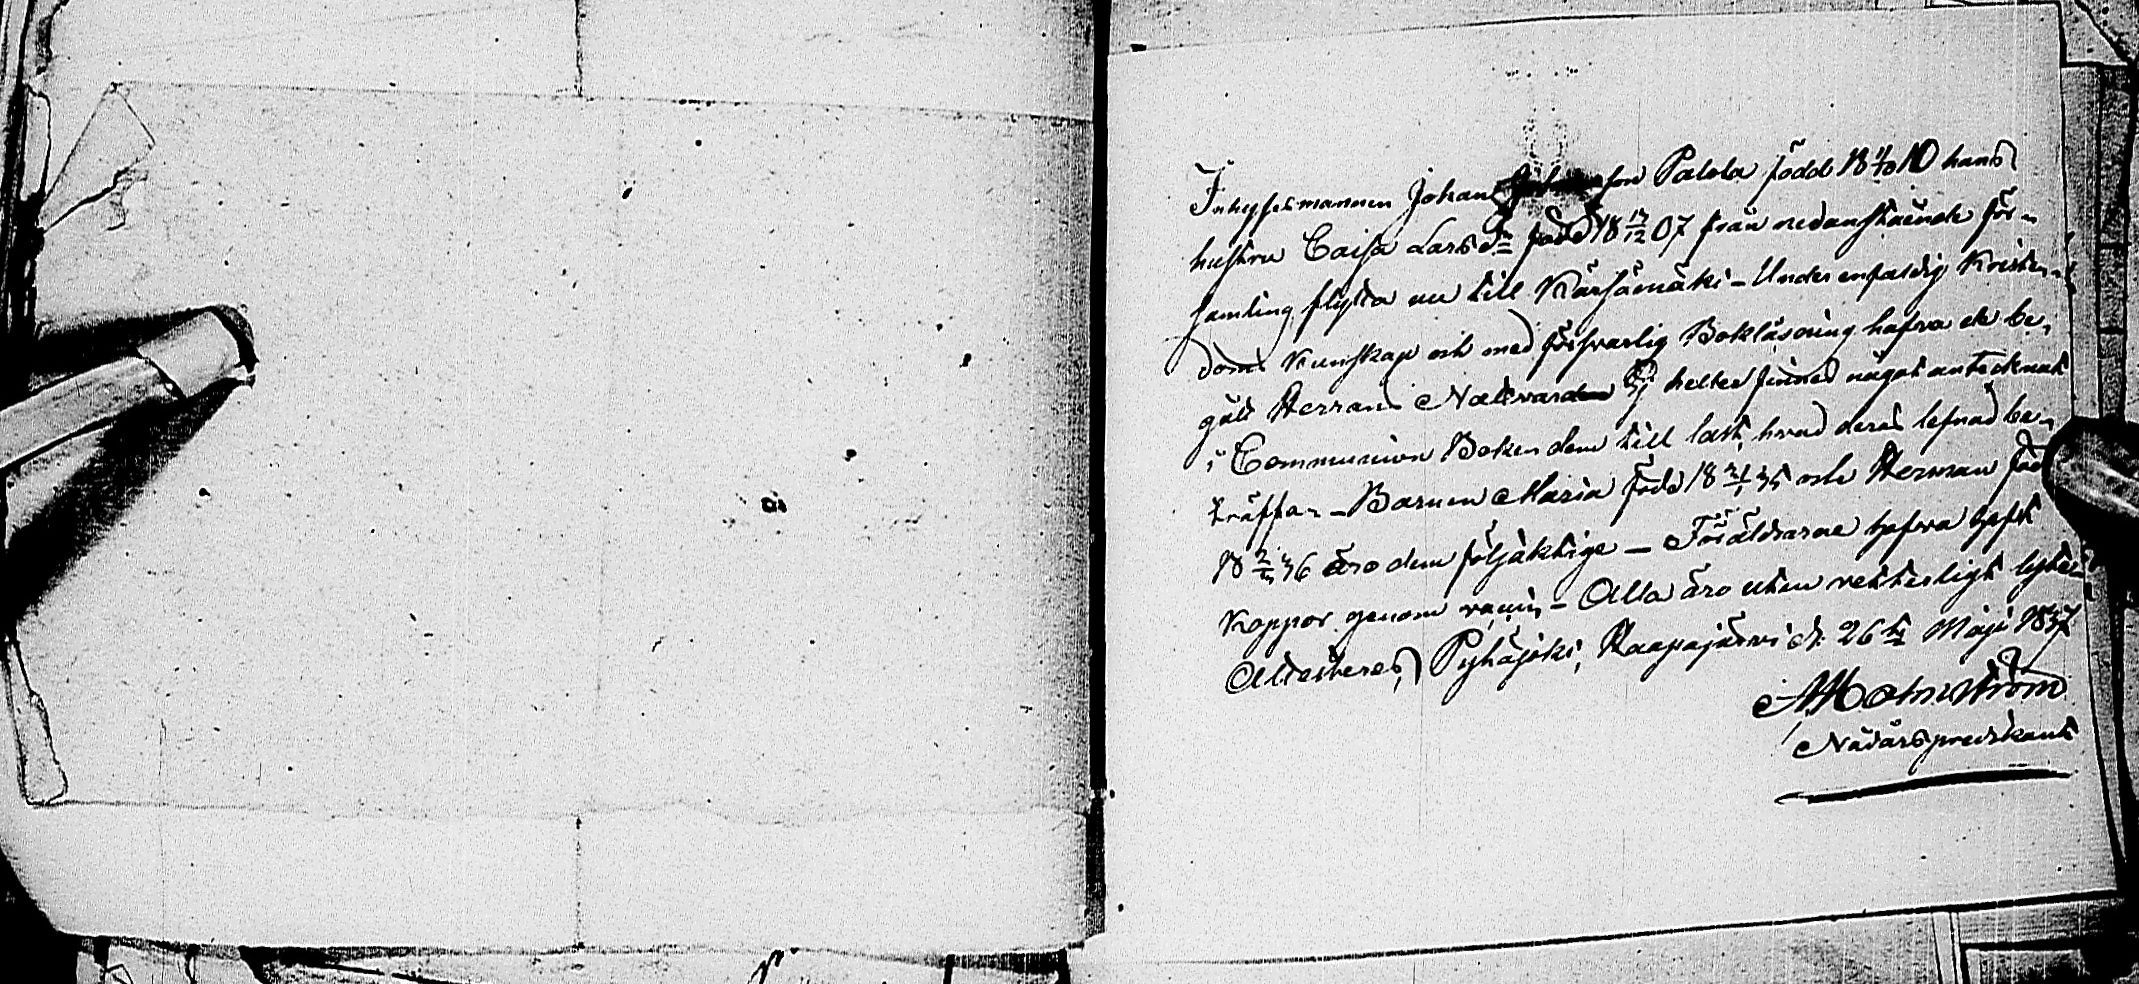 Inhysesmannen Johan Palola född 18 10 hans
hustru Caisa Larsdr född 18 17/12 07 från nedanstående för-
samling flytta nu till Kärsämäki - Under enfaldig Kristen-
doms Kunskap och med försvarlig Bokläsning hafva de be-
gått Herrans Nattvard Ej heller finnes något antecknat
i Communion Boken dem till last, hvad deras lefnad be-
träffar - Barnen Maria född 18 35 och Herman född
18 36 äro dem följaktige - Föräldrarne hafva haft
Koppor genom - Alla äro utan vetterligt lyte.
Attesteras, Pyhäjoki, Haapajärvi d. 26 Maji 1837
Malmström
Nådårspredikant